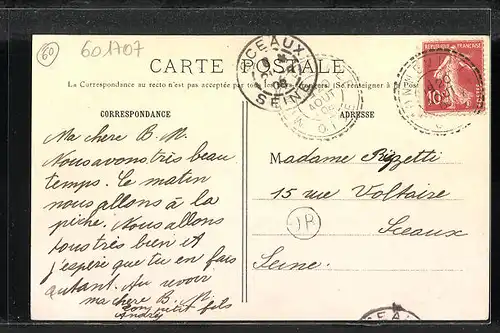 60
601707
CARTE POSTALE
La Correspondance au recto n'est pas acceptée par tous (Se renseigner à la Poste)
CORRESPONDANCE
ADRESSE
SCEAUX
SEINE
AOUT
REPUBLIQUE FRANÇAISE
10
Ma chere B. M.
Nous avons très beau
temps. Ce matin
nous allons à la
pêche. Nous allons
tous très bien et
j'espère que tu en fais
autant. Au revoir
ma chere B. M.
ton petit fils
André
Madame Rizzetti
15 rue Voltaire
Sceaux
Seine.